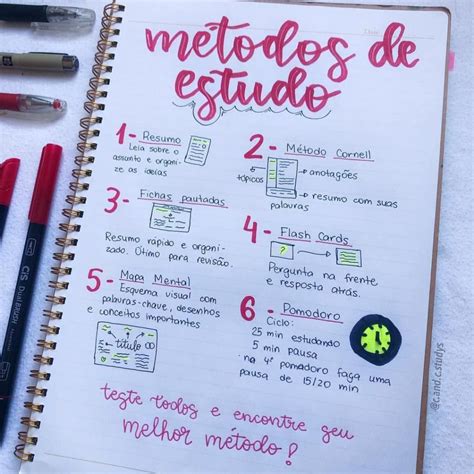 métodos de
estudo
1- Resumo
Leia sobre o
assunto e organi-
ze as ideias
2- Método Cornell
anotações
tópicos
resumo com suas
palavras
3- Fichas pautadas
Resumo rápido e organi-
zado. Ótimo para revisão.
4- Flash Cards
?
Pergunta na frente
e resposta atrás.
5- Mapa Mental
Esquema visual com
palavras-chave, desenhos
e conceitos importantes
título
6- Pomodoro
Ciclo:
25 min estudando
5 min pausa
na 4º pomodoro faça uma
pausa de 15/20 min
teste todos e encontre seu
melhor método!
@c.and.c.studys
CIS
DUAL BRUSH